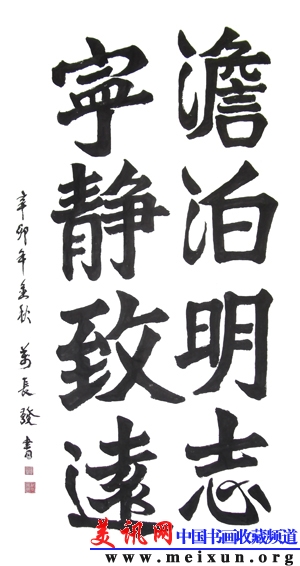 澹泊明志
寧靜致遠
辛卯年金秋 萬長發書
美訊网
中国书画收藏频道
www.meixun.org